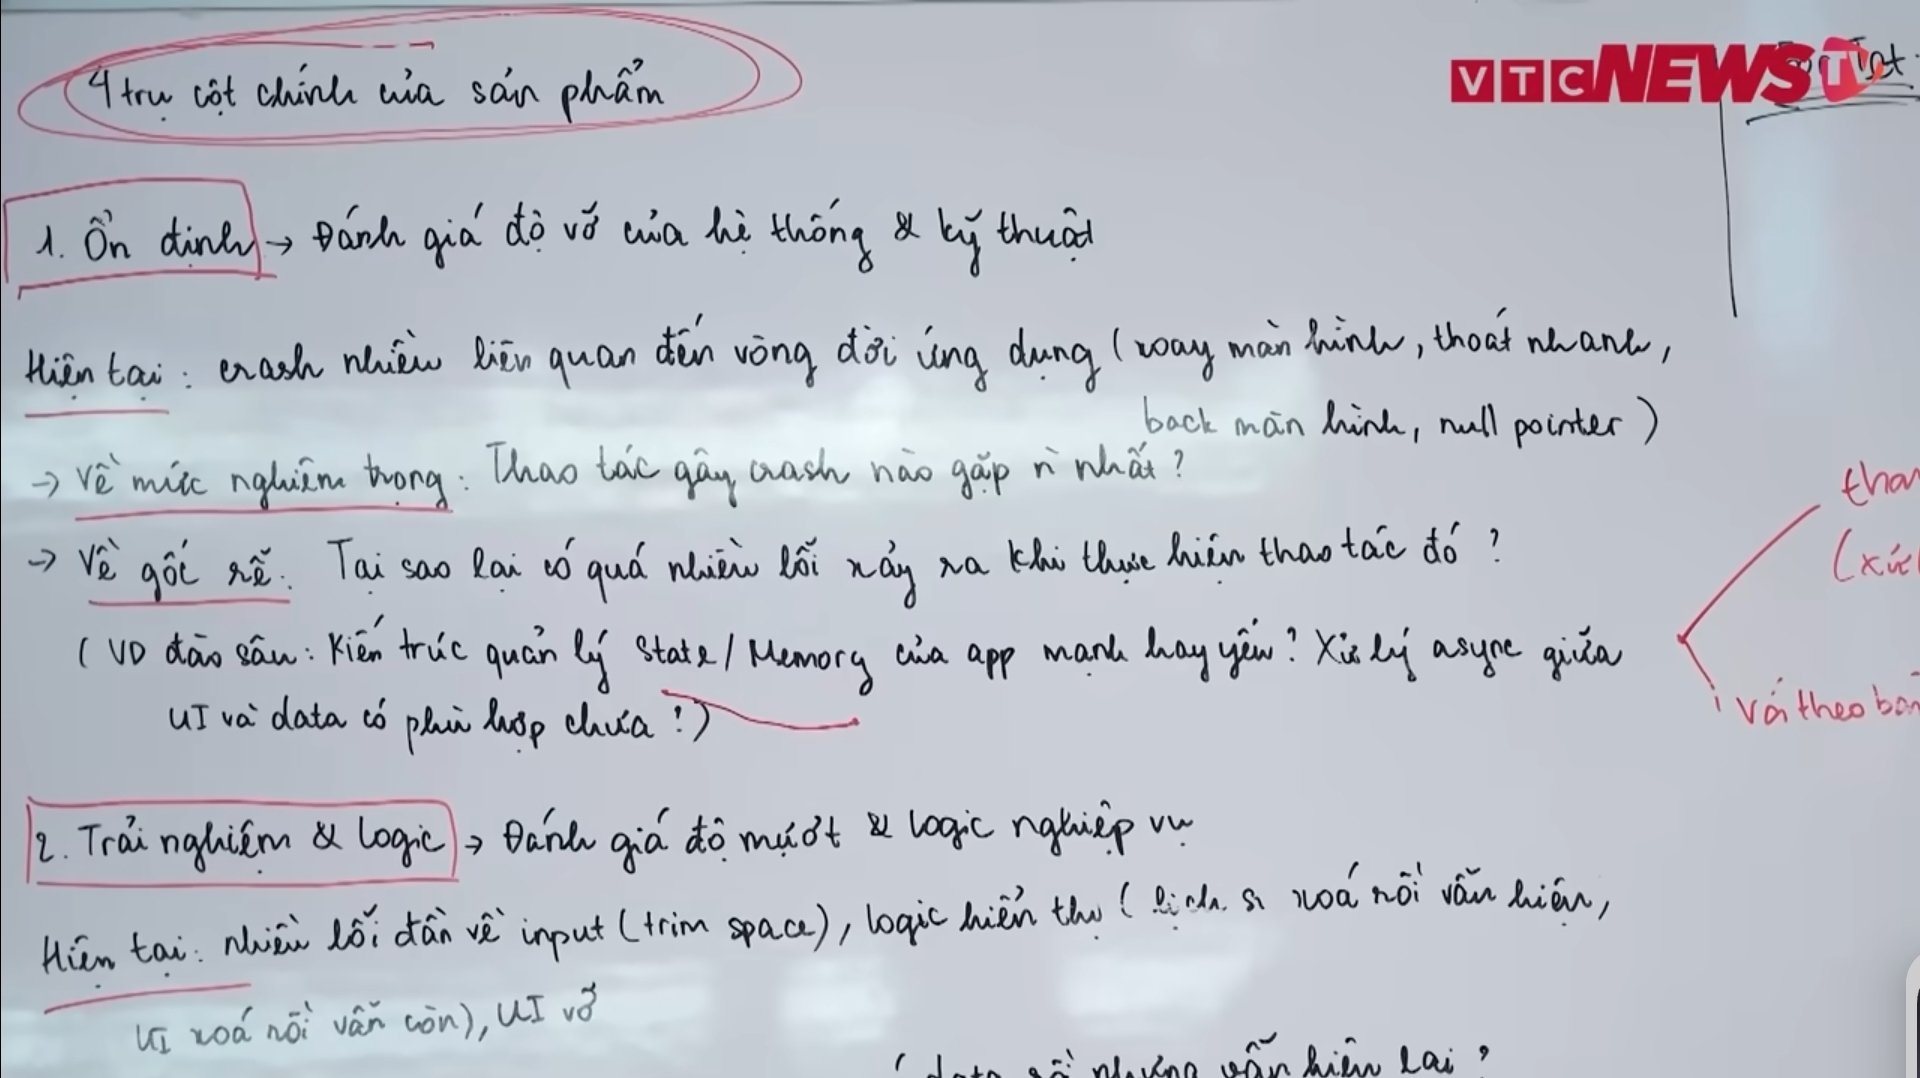 4 trụ cột chính của sản phẩm
VTC NEWS
1. Ổn định → Đánh giá độ vỡ của hệ thống & kỹ thuật
Hiện tại: crash nhiều liên quan đến vòng đời ứng dụng (xoay màn hình, thoát nhanh,
back màn hình, null pointer)
→ Về mức nghiêm trọng: Thao tác gây crash nào gặp n nhất?
→ Về gốc rễ: Tại sao lại có quá nhiều lỗi xảy ra khi thực hiện thao tác đó?
(VD đào sâu: Kiến trúc quản lý State/Memory của app mạnh hay yếu? Xử lý async giữa
UI và data có phù hợp chưa?)
vá theo
2. Trải nghiệm & Logic → Đánh giá độ mượt & logic nghiệp vụ
Hiện tại: nhiều lỗi đần về input (trim space), logic hiển thị (lịch sử xoá rồi vẫn hiện,
UI xoá rồi vẫn còn), UI vỡ
nhưng vẫn hiện lại?